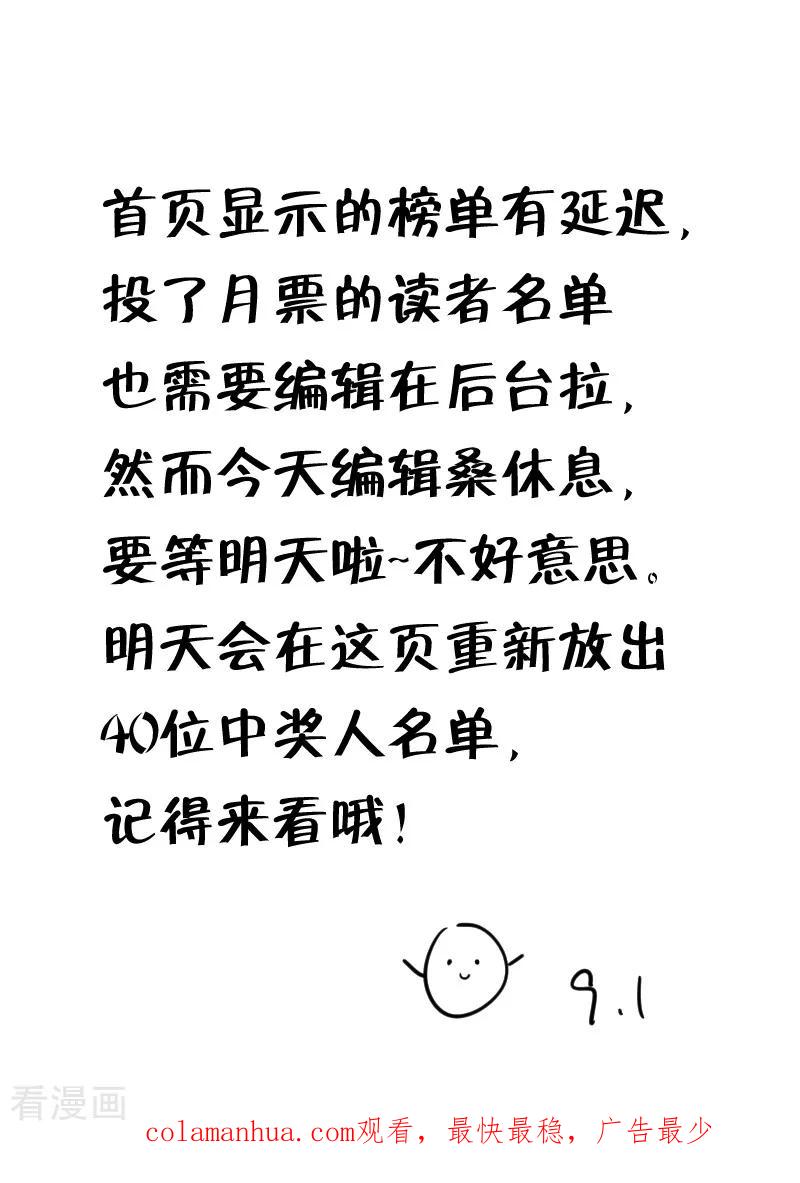 首页显示的榜单有延迟,
投了月票的读者名单
也需要编辑在后台拉,
然而今天编辑桑休息,
要等明天啦~不好意思。
明天会在这页重新放出
40位中奖人名单,
记得来看哦!
9.1
看漫画
colamanhua.com观看，最快最稳，广告最少